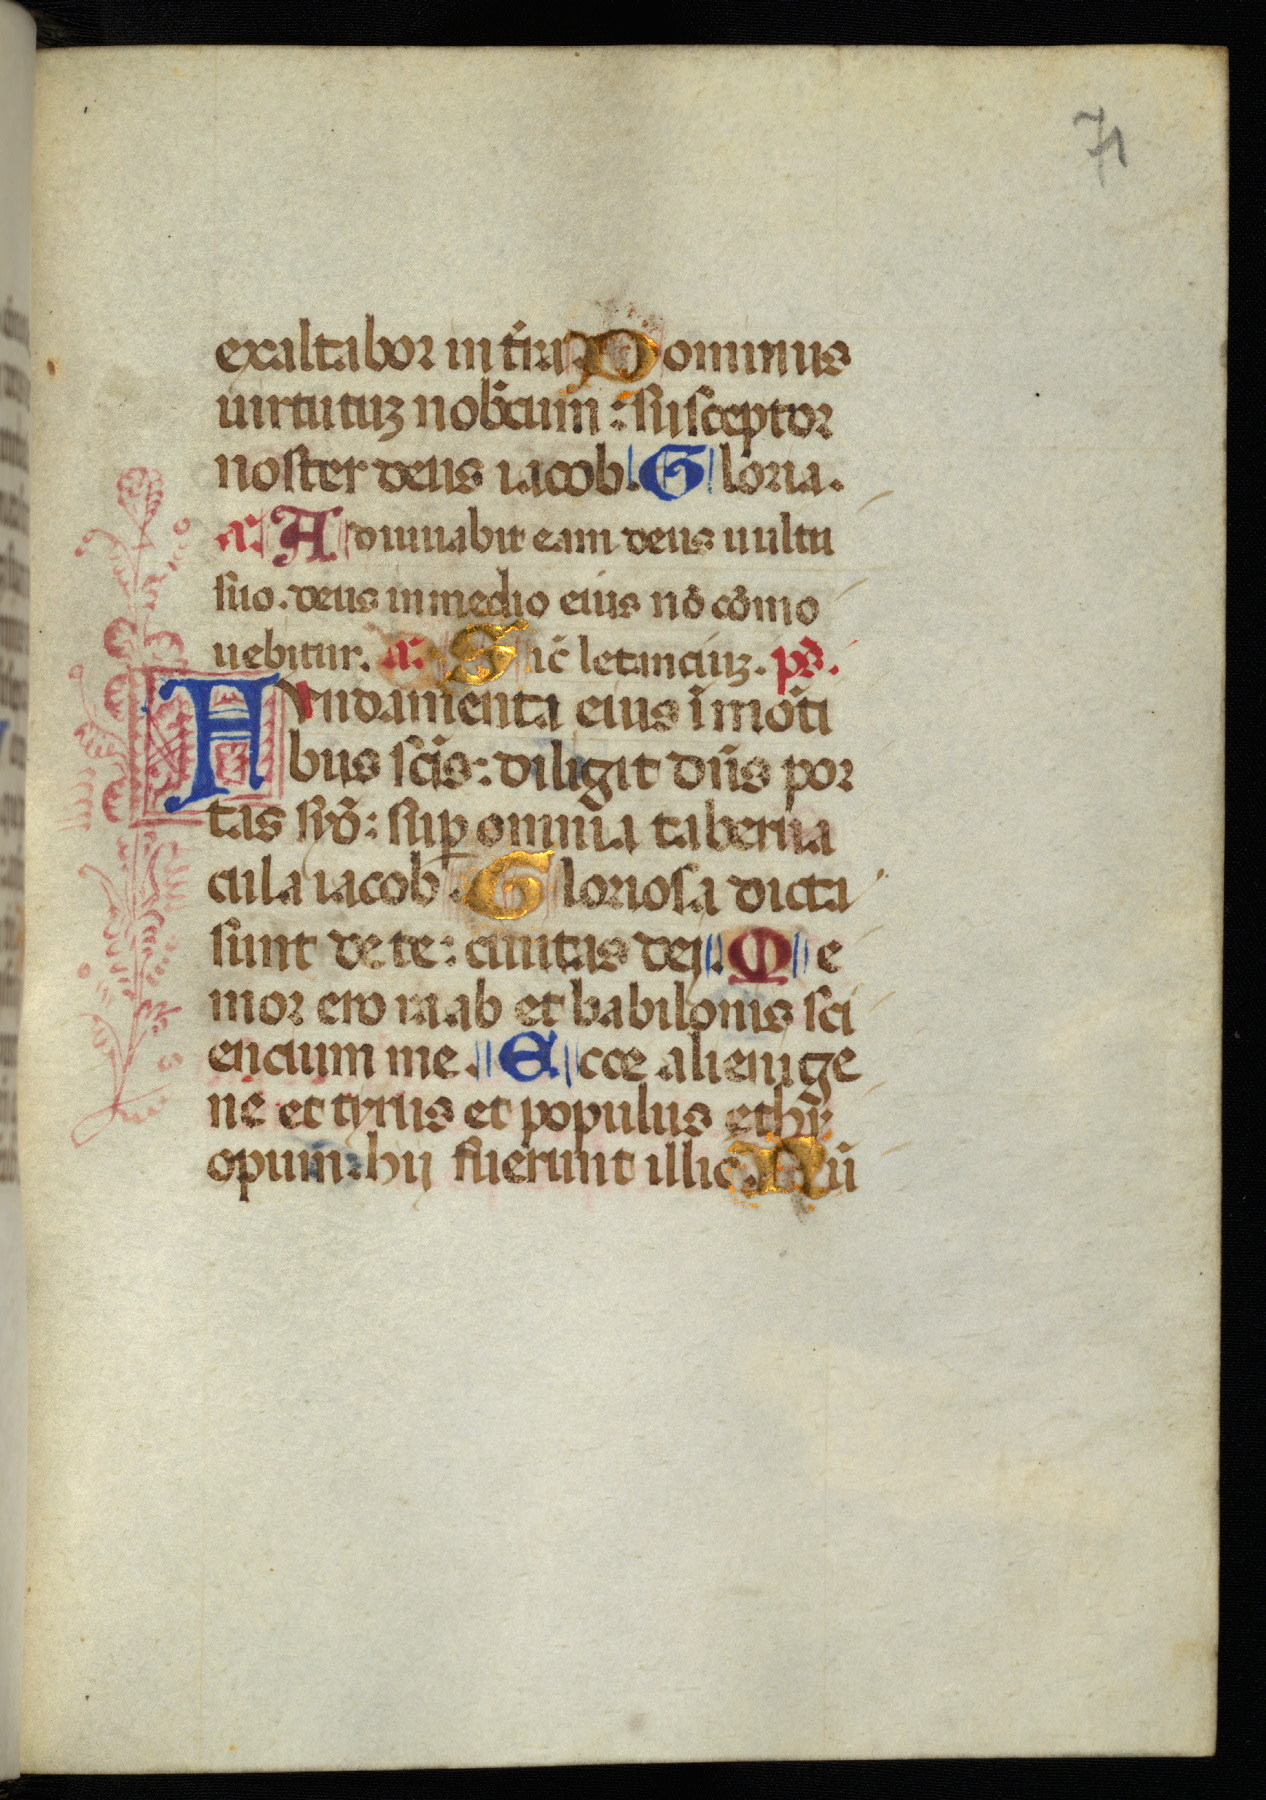 71
exaltabor in t̄ra. Dominus
uirtutuꝫ nob̄cum: susceptor
noster deus iacob. Gloria.
a: Adiuuabit eam deus uultu
suo. deus in medio eius nō cōmo
uebitur. a: Sic̄ letanciuꝫ. ps̄.
Fvndamenta eius ī mōti
bus sc̄is: diligit dn̄s por
tas syō: suꝑ omnia taberna
cula iacob. Gloriosa dicta
sunt de te: ciuitas dei. Me
mor ero raab et babilonis sci
encium me. Ecce alienige
ne et tyrus et populus ethy
opum: hij fuerunt illic. Nū